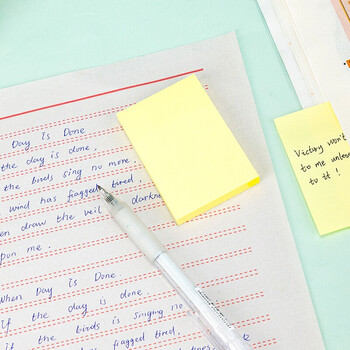 Day Is Done
the day is done.
the birds sing no more.
wind has fagged tired.
draw the veil darkn
upon me.
When Day is Done
If the day is done.
if the birds is singing no
fagged tired.
Victory won't
to me unless
to it!